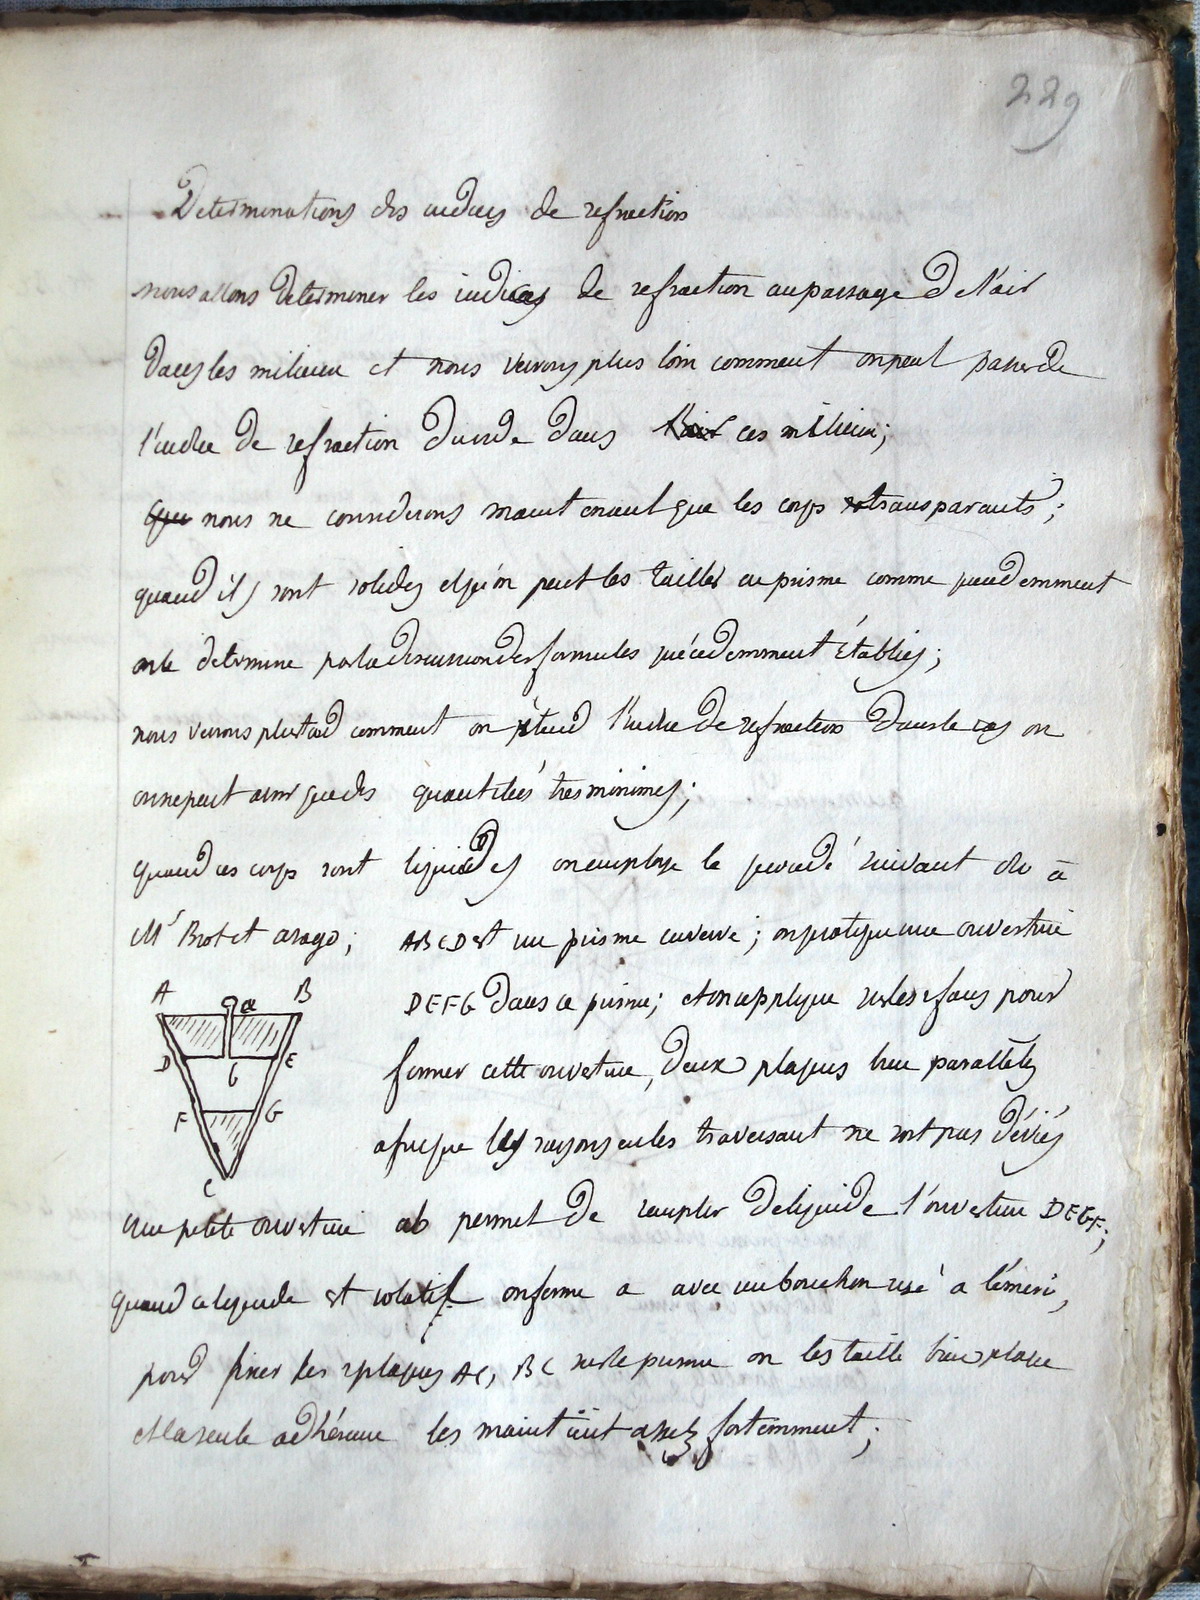 229
Determinations des indices de refraction
nous allons determiner les indices de refraction au passage de l'air
dans les milieux et nous verrons plus loin comment on peut passer de
l'indice de refraction du vide dans l'air ces milieux;
Que nous ne considerons maintenant que les corps transparants;
quand ils sont solides et qu'on peut les tailler en prisme comme precedemment
on le determine par la discussion des formules précédemment établies;
nous verrons plus tard comment on prend l'indice de refraction dans le cas ou
on ne peut avoir que des quantités tres minimes;
quand ces corps sont liquides on employe le procedé suivant du à
Mr Biot et arago; ABCD est un prisme en verre; on pratique une ouverture
DEFG dans ce prisme; et on applique sur les faces pour
former cette ouverture, deux plaques bien parallèles
afin que les rayons en les traversant ne soit pas déviés
A B a
D E
b
F G
C
une petite ouverture ab permet de remplir de liquide l'ouverture DEGF;
quand ce liquide est volatil on ferme a avec un bouchon usé a l'émeri,
pour fixer les 2 plaques AC, BC sur le prisme on les taille bien plane
et la seule adhérence les maintient assez fortemment;